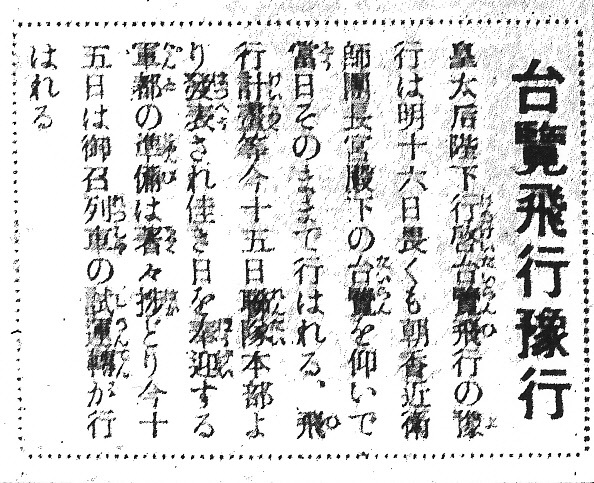 台覽飛行豫行
皇太后陛下行啓台覽飛行の豫
行は明十六日畏くも朝香近衞
師團長宮殿下の台覽を仰いで
當日そのままで行はれる、飛
行計畫等今十五日聯隊本部よ
り發表され佳き日を奉迎する
軍都の準備は著々捗どり今十
五日は御召列車の試運轉が行
はれる